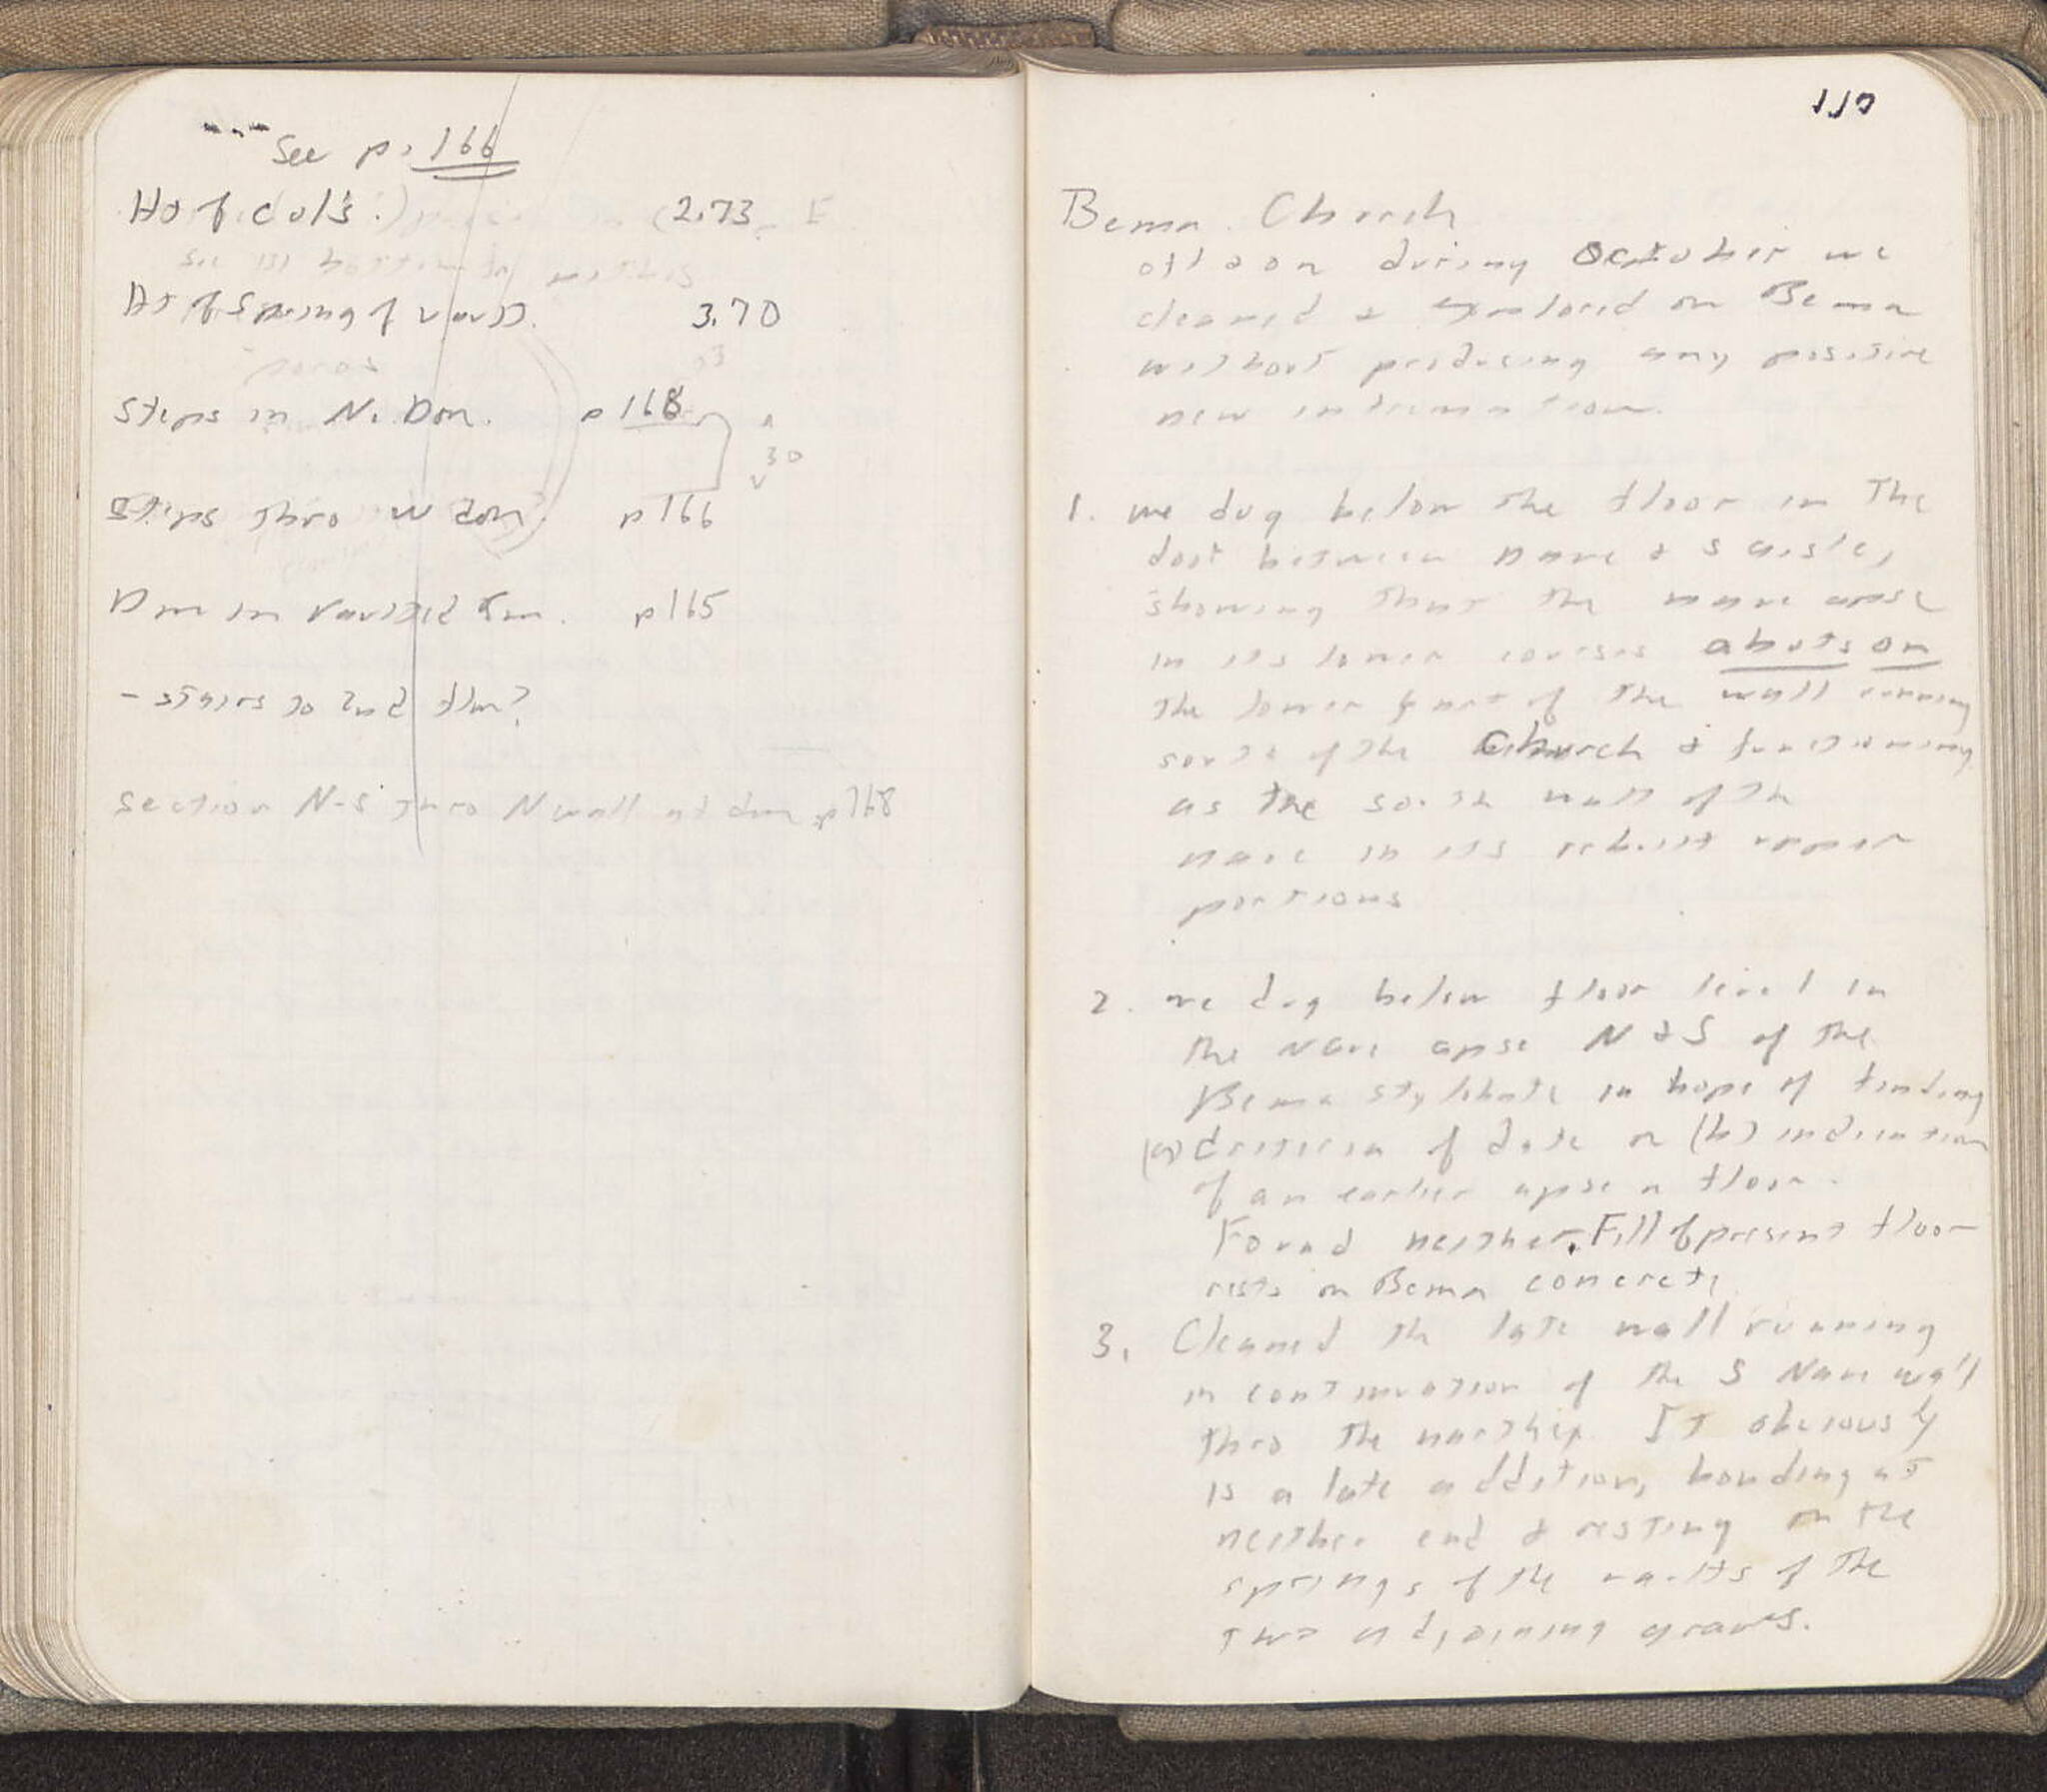 See p. 166
Ht of col's. 2.73
Ht of Spring of vault. 3.70
Steps in N. Dm. p 168
30
Steps thro w dm. p 166
Dm in vaulted rm. p 165
- stairs to 2nd flm?
Section N-S thro N wall at dm p 168
110
Bema Church
off & on during October we
cleaned & explored on Bema
without producing any positive
new information.
1. we dug below the floor in the
door between nave & S aisle,
showing that the nave apse
in its lower courses abuts on
the lower part of the wall running
south of the Church & functioning
as the south wall of the
nave in its rebuilt upper
portions
2. we dug below floor level in
the Nave apse N & S of the
Bema stylobate in hope of finding
(a) criteria of date or (b) indication
of an earlier apse or floor.
Found neither. Fill of present floor
rests on Bema concrete
3. Cleaned the late wall running
in continuation of the S Nave wall
thro the narthex. It obviously
is a late addition, bonding at
neither end & resting on the
springs of the vaults of the
two adjoining graves.